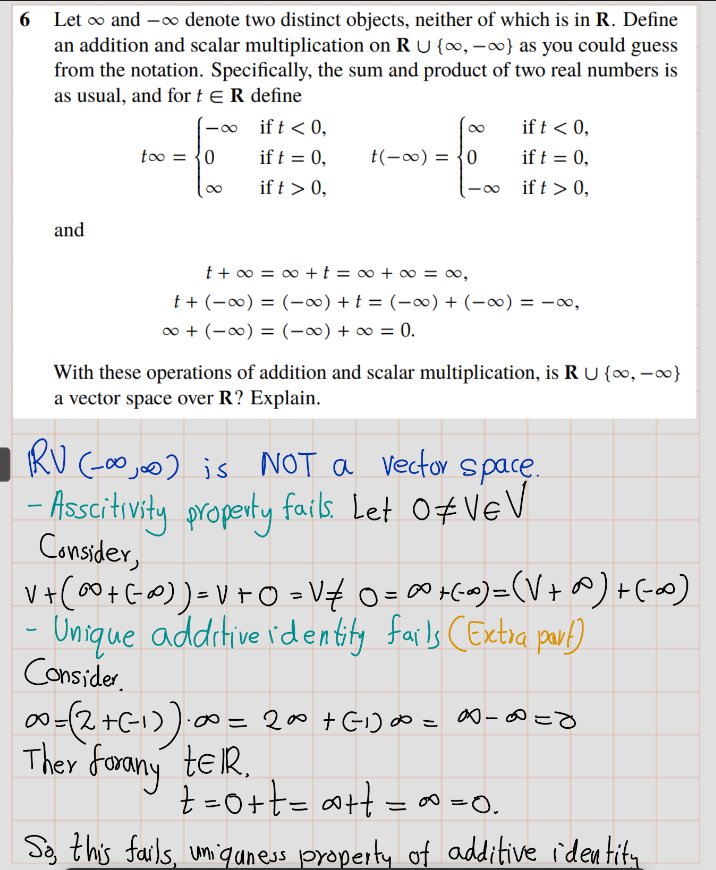 6 Let ∞ and −∞ denote two distinct objects, neither of which is in R. Define
an addition and scalar multiplication on R ∪ {∞, −∞} as you could guess
from the notation. Specifically, the sum and product of two real numbers is
as usual, and for t ∈ R define
t∞ = { −∞ if t < 0, t(−∞) = { ∞ if t < 0,
0 if t = 0, 0 if t = 0,
∞ if t > 0, −∞ if t > 0,
and
t + ∞ = ∞ + t = ∞ + ∞ = ∞,
t + (−∞) = (−∞) + t = (−∞) + (−∞) = −∞,
∞ + (−∞) = (−∞) + ∞ = 0.
With these operations of addition and scalar multiplication, is R ∪ {∞, −∞}
a vector space over R? Explain.
ℝU (-∞,∞) is NOT a vector space.
- Asscitivity property fails. Let 0≠V∈V
Consider,
V+(∞+(-∞))=V+0=V≠0=∞+(-∞)=(V+∞)+(-∞)
- Unique additive identity fails (Extra part)
Consider.
∞=(2+(-1))·∞ = 2∞ +(-1)∞ = ∞-∞=0
Then forany t∈ℝ,
t=0+t=∞+t=∞=0.
So, this fails, uniquness property of additive identity